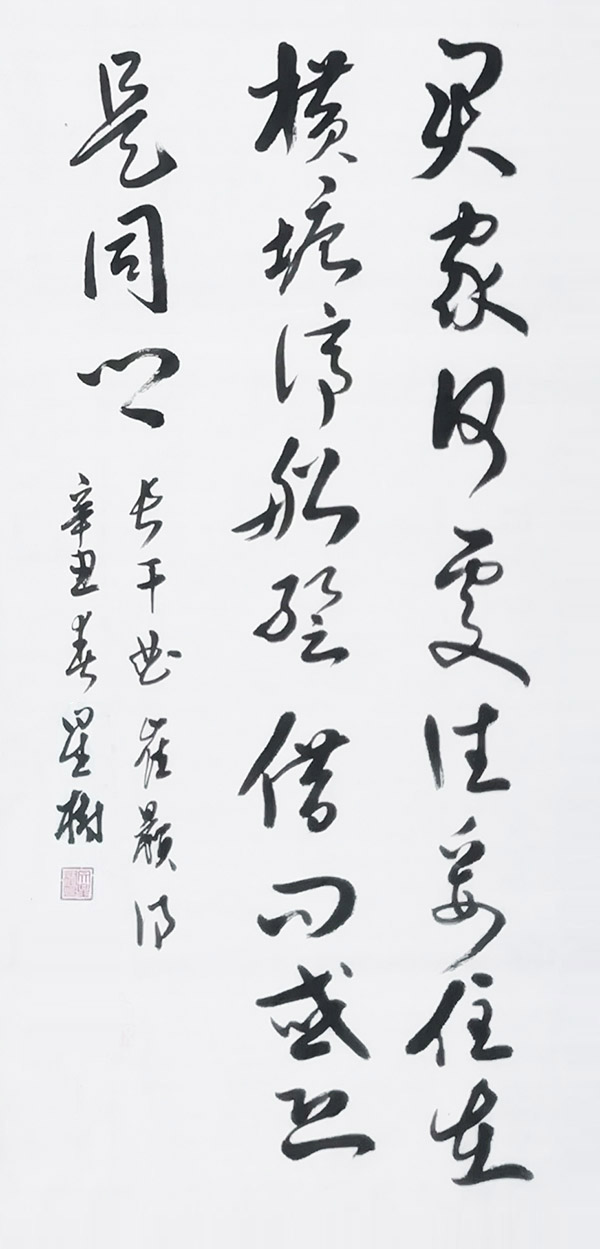 君家何處住妾住在
橫塘停船暫借問或恐
是同鄉
長干曲 崔顥詩
辛丑春星樹